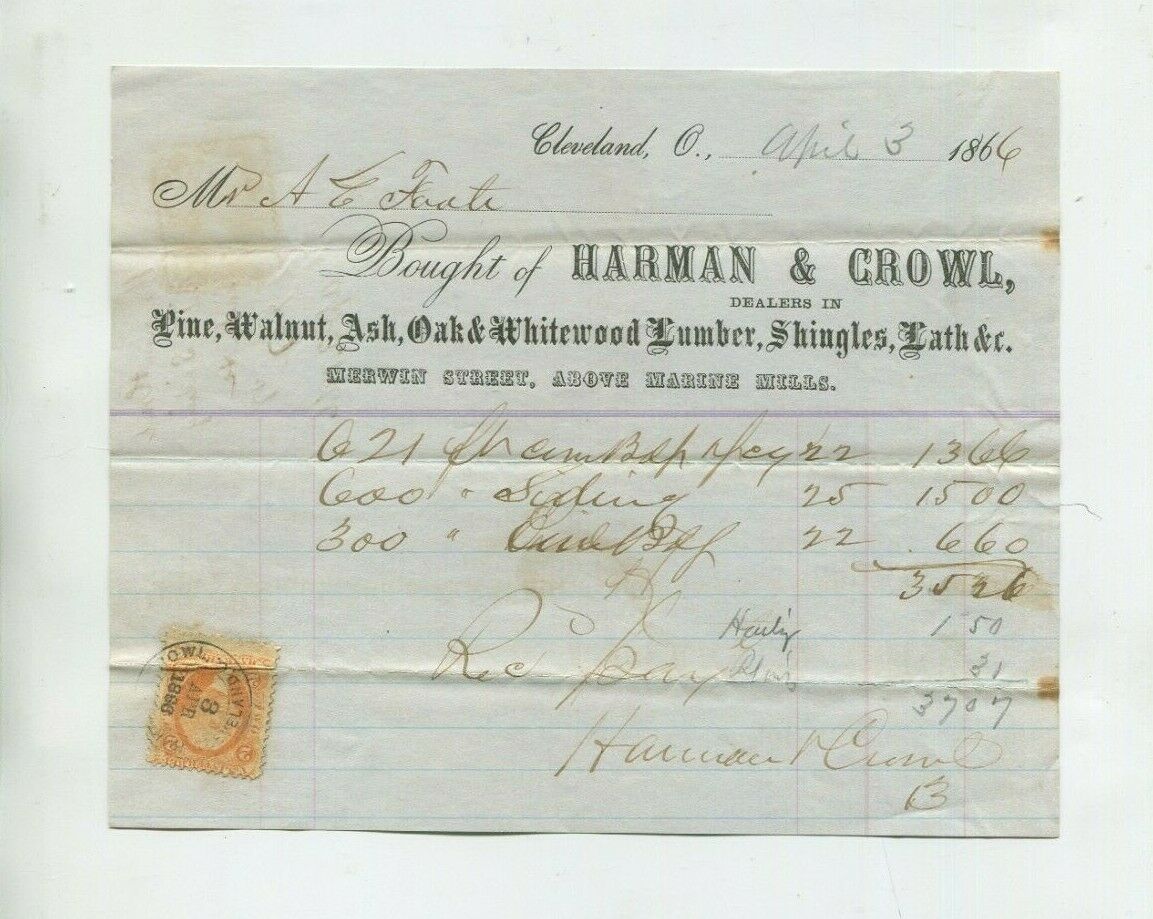 Cleveland, O., April 3 1866
Mr A E Foote
Bought of HARMAN & CROWL,
DEALERS IN
Pine, Walnut, Ash, Oak & Whitewood Lumber, Shingles, Lath &c.
MERWIN STREET, ABOVE MARINE MILLS.
621 ft 22 1366
600 " Siding 25 1500
300 " 22 660
3526
1 50
Rec Pay 31
3707
Harman & Crowl
B
CROWL CLEVELAND
APR
3
1866